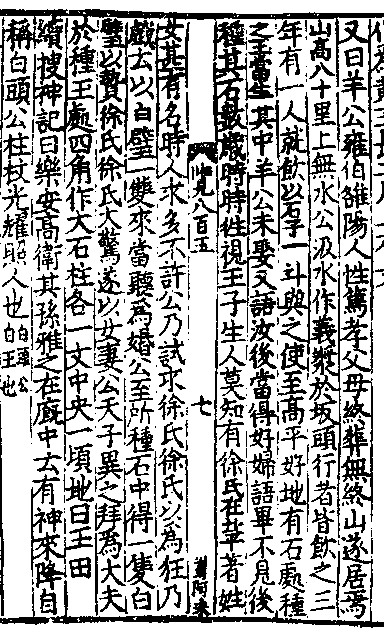 又曰羊公雍伯雒陽人性篤孝父母終葬無終山遂居焉
山高八十里上無水公汲水作義漿於坂頭行者皆飲之三
年有一人就飲以石子一斗與之使至高平好地有石處種
之玉當生其中羊公未娶又語汝後當得好婦語畢不見後
種其石數歲時時往視玉子生人莫知有徐氏者姓
覽八百五
七
女甚有名時人求多不許公乃試求徐氏徐氏以為狂乃
戲云以白璧一雙來當聽為婚公至所種石中得一隻白
璧以贄徐氏徐氏大驚遂以女妻公天子異之拜為大夫
於種王處四角作大石柱各一丈中央一頃地曰玉田
續搜神記曰樂安高衛其孫雅之在廄中云有神來降自
稱白頭公柱杖光耀照人也白頭公白玉也